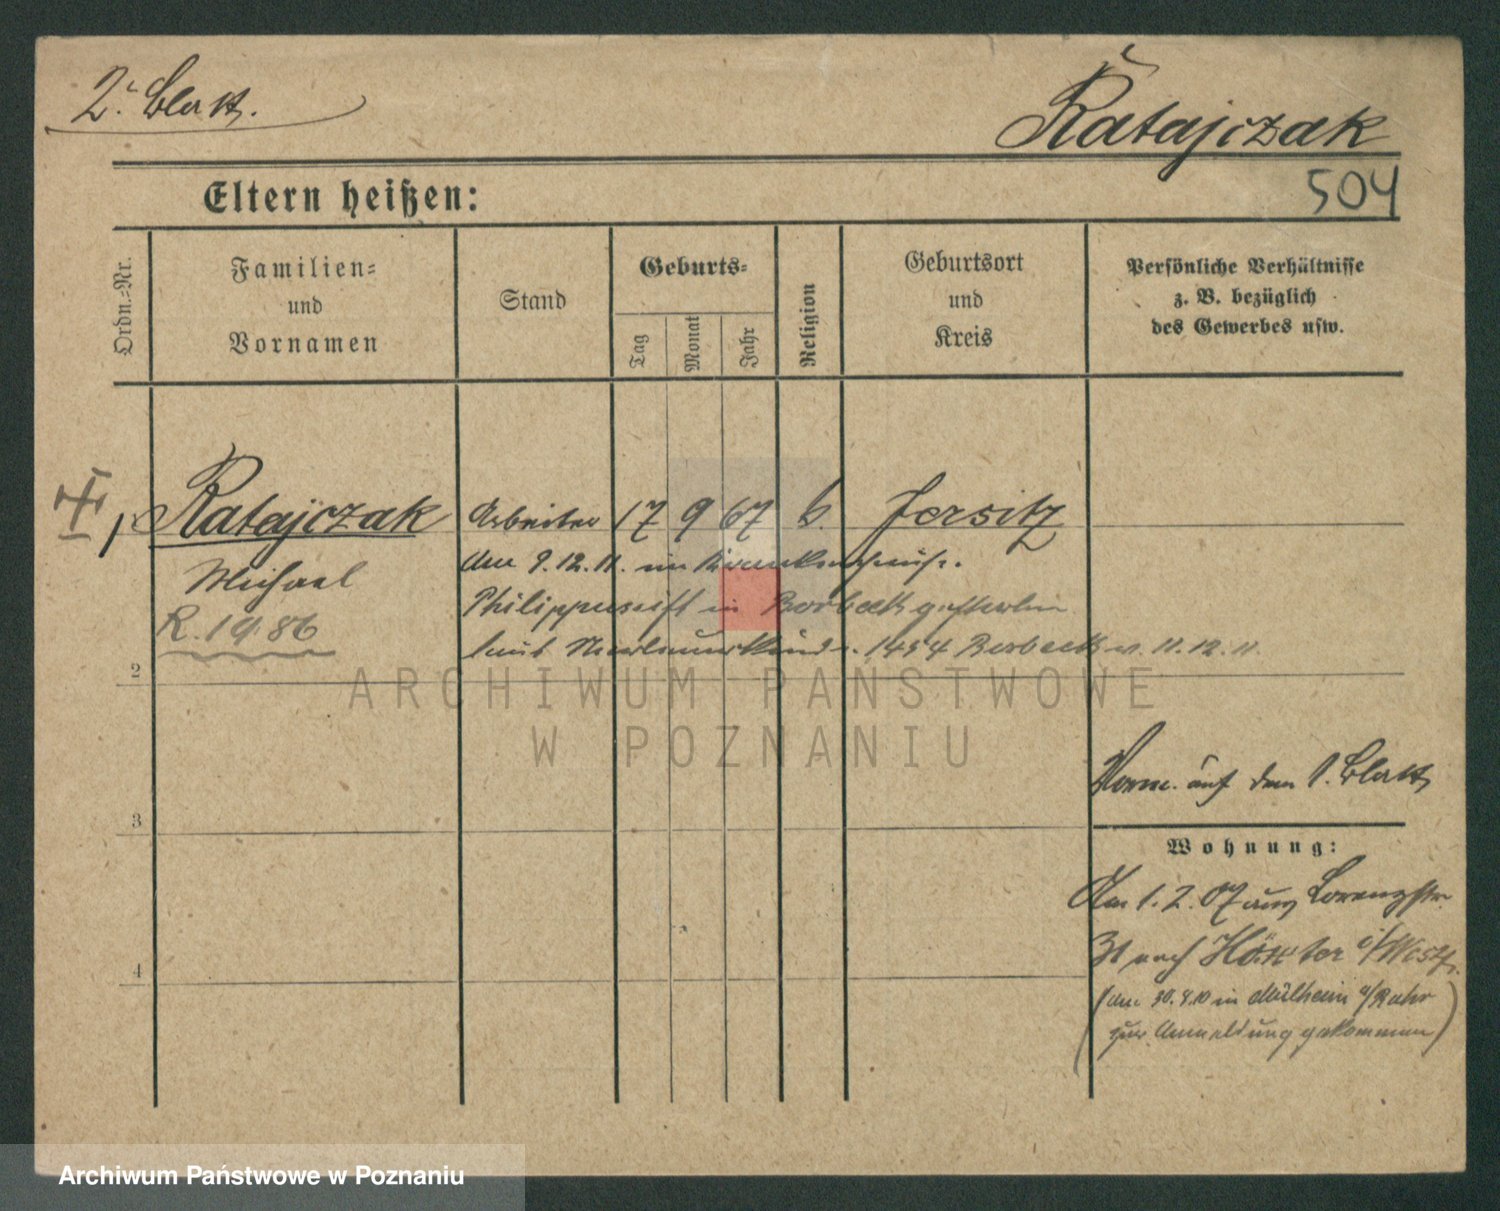 2. Blatt.
Ratajczak
504
Eltern heißen:
Ordn.-Nr.
Familien-
und
Vornamen
Stand
Geburts-
Tag
Monat
Jahr
Religion
Geburtsort
und
Kreis
Persönliche Verhältnisse
z. B. bezüglich
des Gewerbes usw.
1 Ratajczak Arbeiter 17 9 67 k. Jersitz
Michael
R. 1986
am 9.12.11. im Krankenhause
Philippusstift in Borbeck gestorben
laut Sterbeurkunde 1454 Borbeck v. 11.12.11.
2
ARCHIWUM PAŃSTWOWE
W POZNANIU
3
4
Verm. auf dem 1. Blatt
Wohnung:
Am 1.2.07 aus Lorenzstr.
31 nach Höxter i/Westf.
(am 30.8.10 in Mülheim a/Ruhr
zur Anmeldung gekommen)
Archiwum Państwowe w Poznaniu